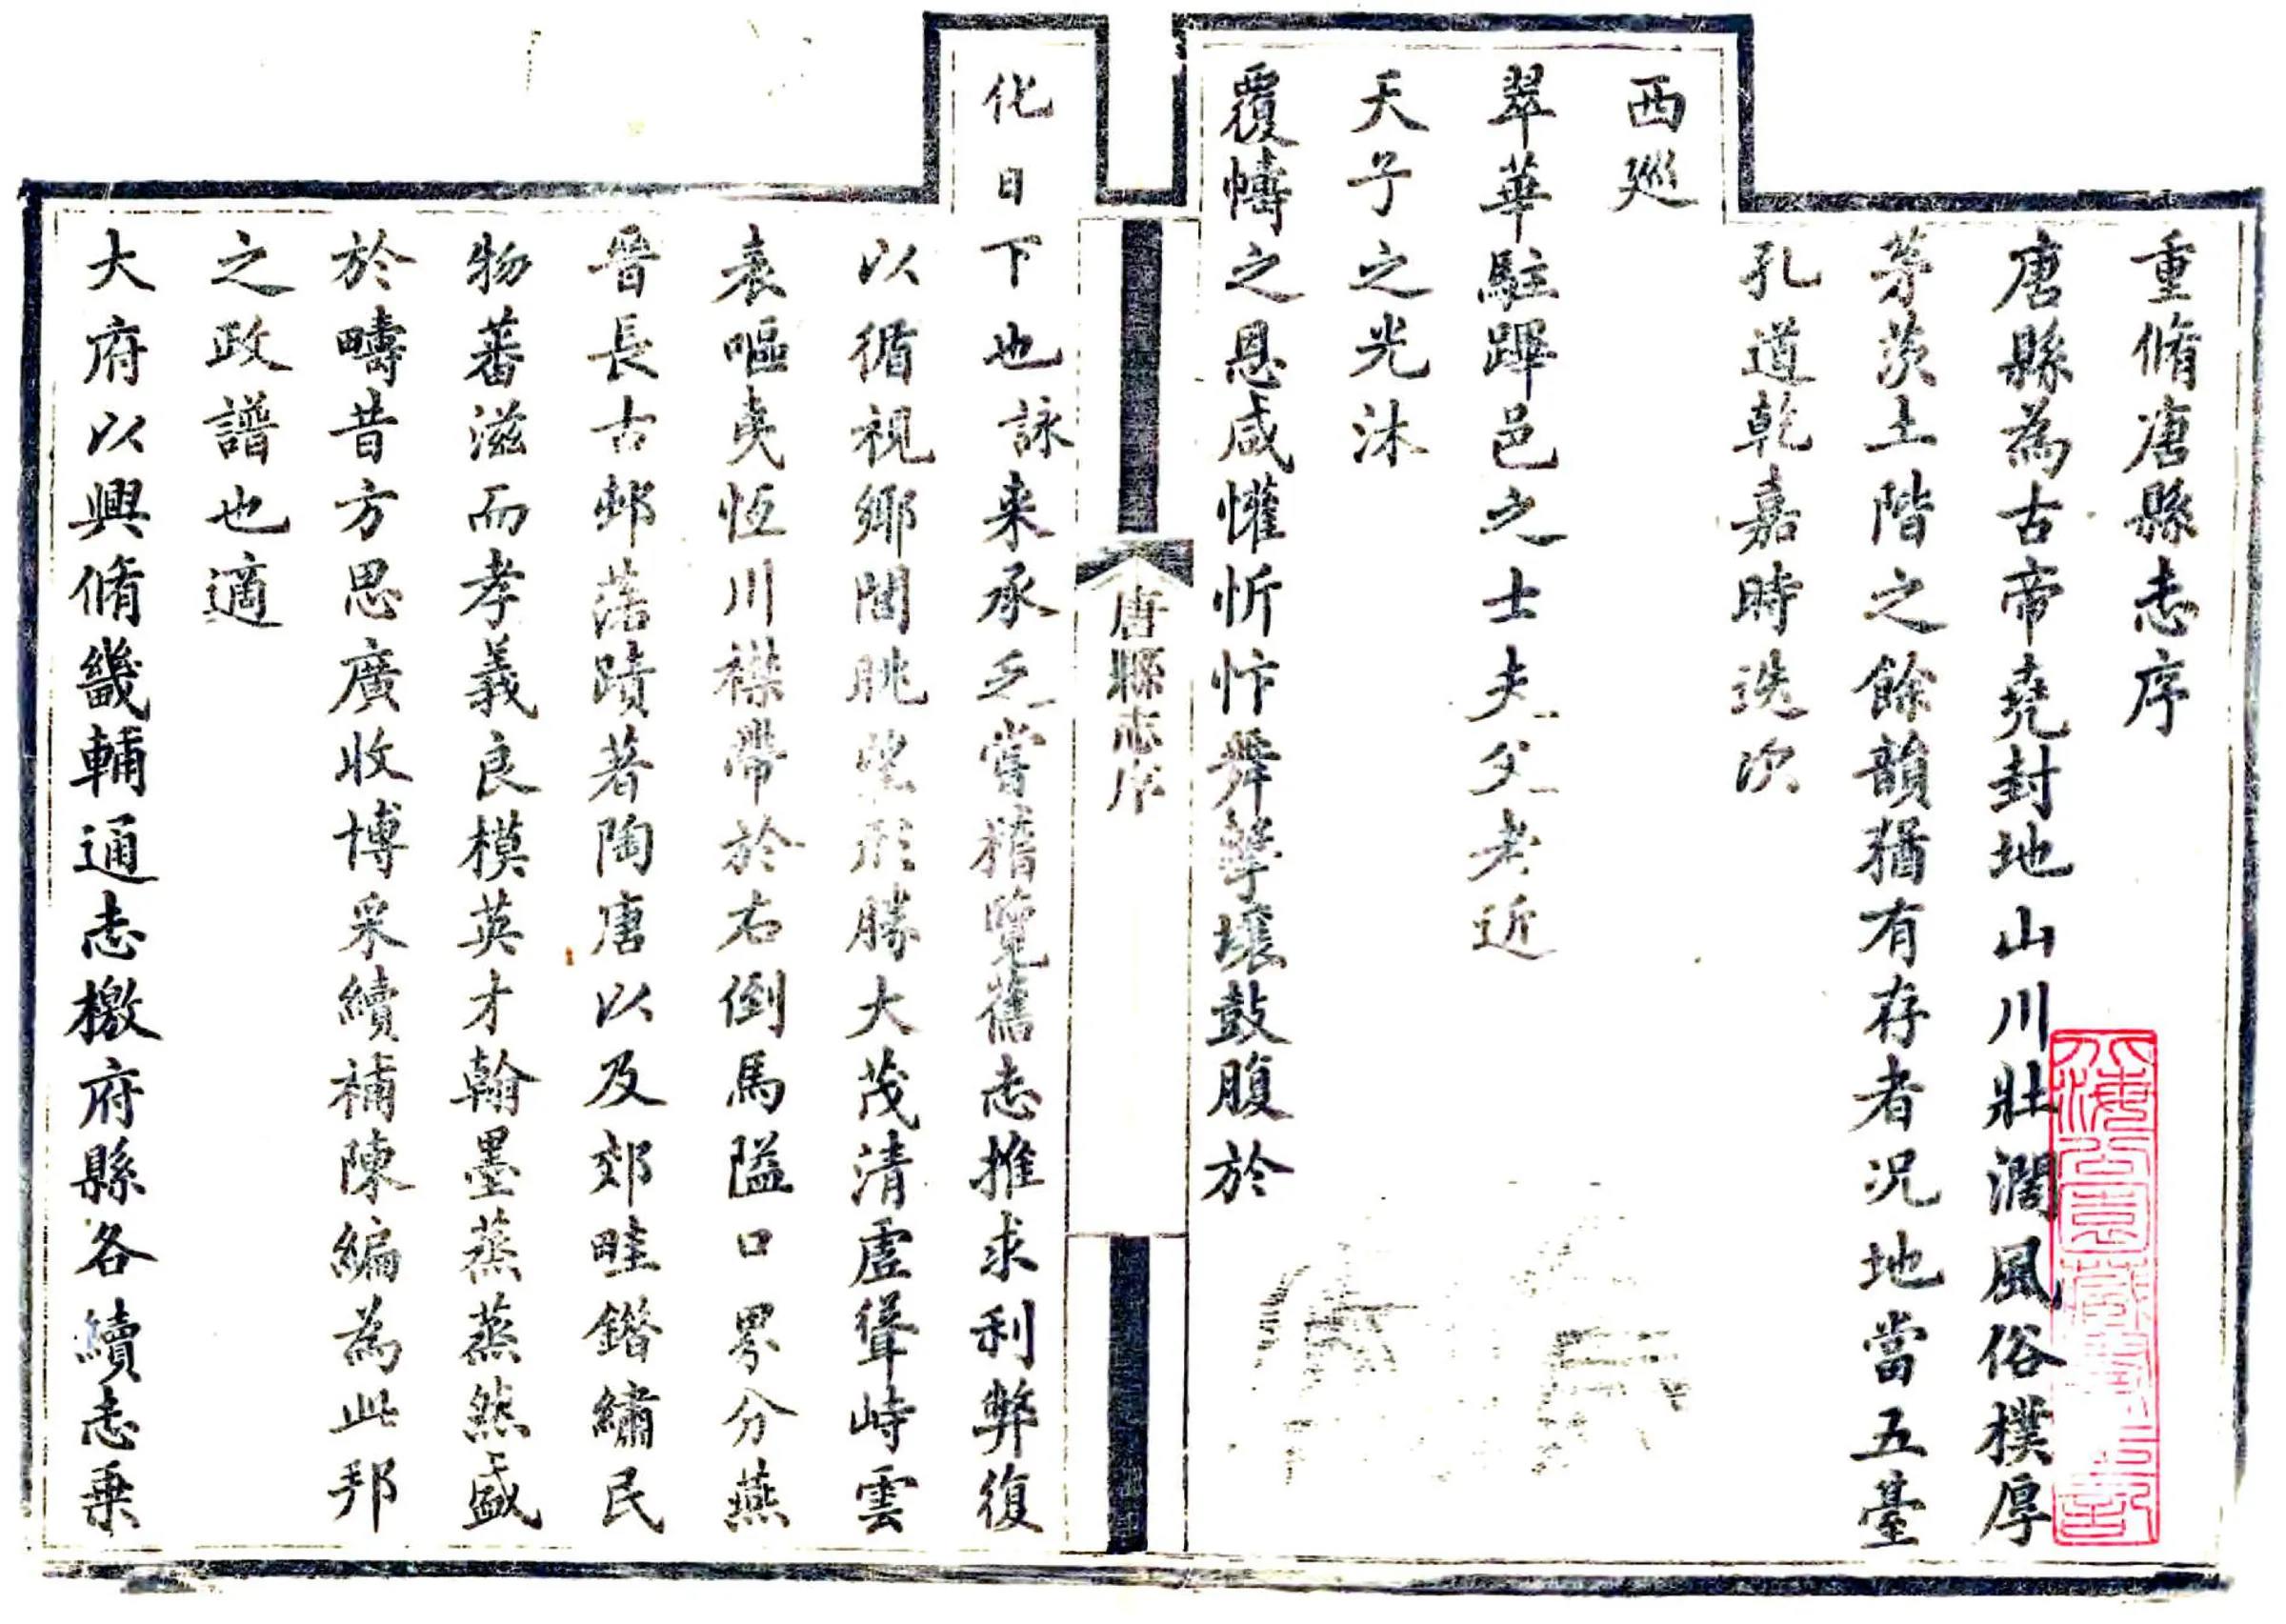 重脩唐縣志序
唐縣為古帝堯封地山川壯濶風俗樸厚
茅茨土階之餘韻猶有存者況地當五臺
孔道乾嘉時迭次
西廵
翠華駐蹕邑之士夫父老近
天子之光沐
覆幬之恩咸懽忻忭舞擊壤鼓腹於
唐縣志序
化日下也詠来承乏嘗稽覽舊志推求利弊復
以循視鄉閭眺望形勝大茂清虛聳峙雲
表嘔夷恆川襟帶於右倒馬隘口界分燕
晉長古邨落蹟著陶唐以及郊畦鍇繡民
物蕃滋而孝義良模英才翰墨蒸蒸然盛
於疇昔方思廣收博采續補陳編為此邦
之政譜也適
大府以興脩畿輔通志檄府縣各續志乗